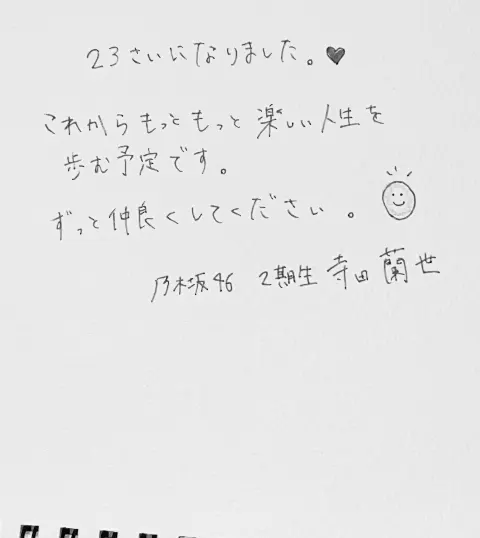 23さいになりました。♥
これからもっともっと楽しい人生を
歩む予定です。
ずっと仲良くしてください。
乃木坂46 2期生 寺田 蘭世